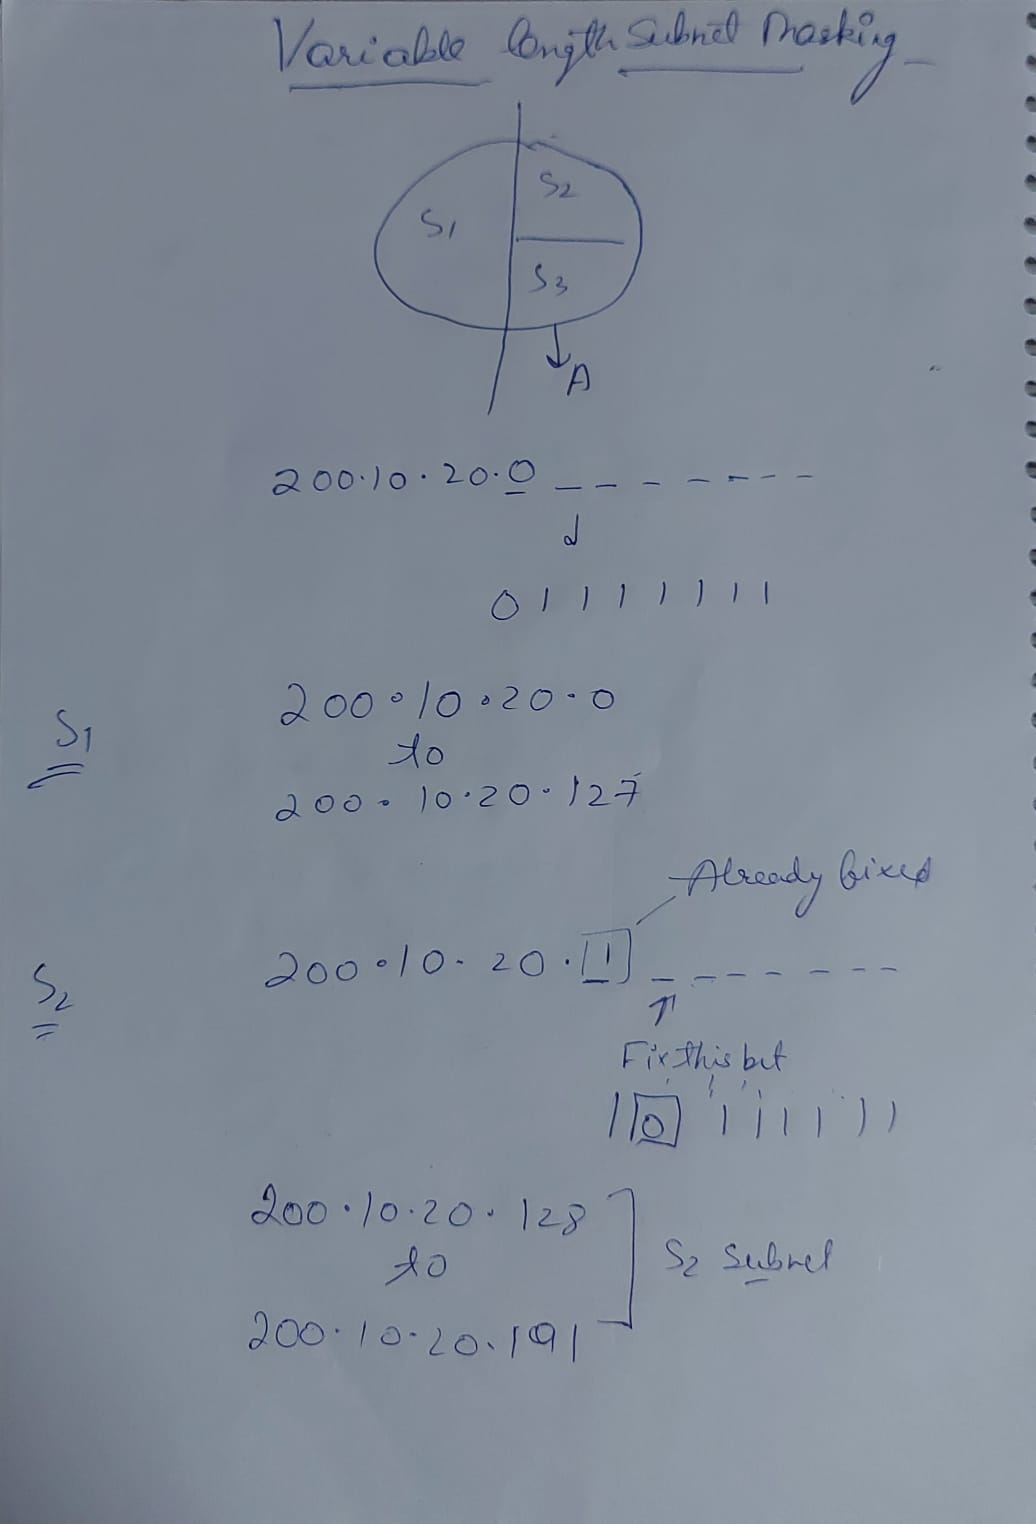 Variable length Subnet Masking
S1
S2
S3
A
200.10.20.0 _ _ _ _ _ _ _
0 1 1 1 1 1 1 1
S1
200.10.20.0
to
200.10.20.127
Already fixed
S2
200.10.20.1 _ _ _ _ _ _ _
Fix this bit
1 0 1 1 1 1 1 1
200.10.20.128
to
S2 Subnet
200.10.20.191